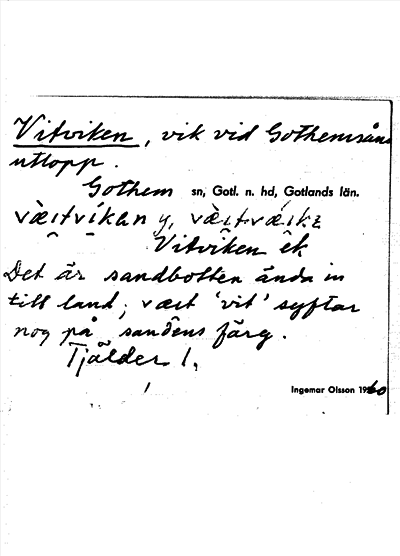 Vitviken, vik vid Gothemsåns
utlopp.
Gothem sn, Gotl. n. hd, Gotlands län.
Vitviken ék
Det är sandbotten ända in
till land; væit 'vit' syftar
nog på sandens färg.
Tjälder 1.
Ingemar Olsson 1960